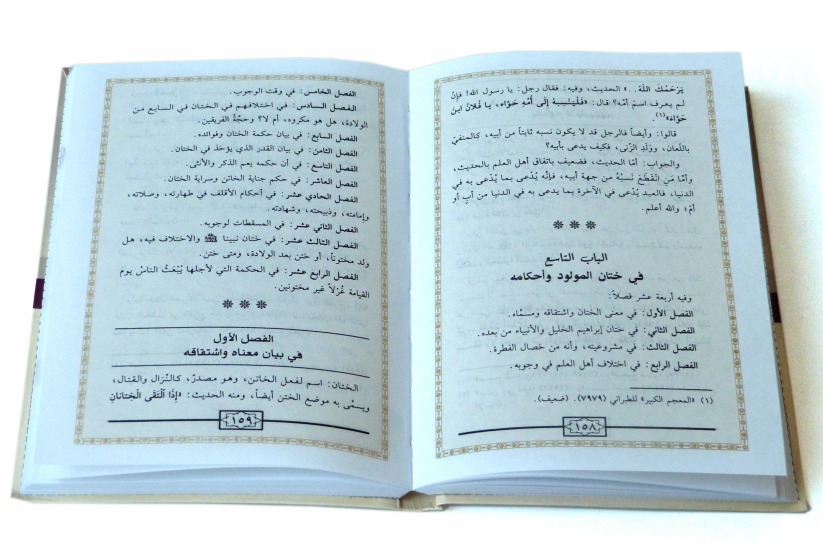 يَرْحَمُكَ اللّهُ. .» الحديث، وفيه: فقال رجل: يا رسول الله! فإنْ
لم يعرف اسمَ أمّه؟ قال: «فَلْيَنْسِبهُ إلَى أُمِّهِ حَوَّاء، يا فُلانُ ابنَ
حَوَّاء»(١).
قالوا: وأيضاً فالرجل قد لا يكون نسبه ثابتاً من أبيه، كالمنفيِّ
باللّعان، وولَدِ الزِّنى، فكيف يدعى بأبيه؟
والجواب: أمّا الحديث، فضعيف باتفاق أهل العلم بالحديث،
وأمّا مَنِ انْقَطَعَ نَسَبُهُ من جهة أبيه، فإنَّه يُدعَى بما يُدْعَى به في
الدنيا، فالعبد يُدْعى في الآخرة بما يدعى به في الدنيا من أبٍ أو
أمّ؛ والله أعلم.
الباب التاسع
في ختان المولود وأحكامه
وفيه أربعة عشر فصلاً:
الفصل الأول: في معنى الختان واشتقاقه ومسمَّاه.
الفصل الثاني: في ختان إبراهيم الخليل والأنبياء من بعده.
الفصل الثالث: في مشروعيته، وأنه من خصال الفطرة.
الفصل الرابع: في اختلاف أهل العلم في وجوبه.
(١) «المعجم الكبير» للطبراني (٧٩٧٩). (ضعيف).
١٥٨
الفصل الخامس: في وقت الوجوب.
الفصل السادس: في اختلافهم في الختان في السابع من
الولادة، هل هو مكروه، أم لا؟ وحجّةُ الفريقين.
الفصل السابع: في بيان حكمة الختان وفوائده.
الفصل الثامن: في بيان القدر الذي يؤخذ في الختان.
الفصل التاسع: في أن حكمه يعم الذكر والأنثى.
الفصل العاشر: في حكم جناية الخاتن وسراية الختان.
الفصل الحادي عشر: في أحكام الأقلف في طهارته، وصلاته،
وإمامته، وذبيحته، وشهادته.
الفصل الثاني عشر: في المسقطات لوجوبه.
الفصل الثالث عشر: في ختان نبينا ﷺ والاختلاف فيه، هل
ولد مختوناً، أو ختن بعد الولادة، ومتى ختن.
الفصل الرابع عشر: في الحكمة التي لأجلها يُبْعَثُ الناسُ يوم
القيامة غُرْلاً غير مختونين.
الفصل الأول
في بيان معناه واشتقاقه
الختان: اسم لفعل الخاتن، وهو مصدرٌ، كالنّزال والقتال،
ويسمَّى به موضع الختن أيضاً، ومنه الحديث: «إِذَا الْتَقَى الْخِتَانَانِ
١٥٩